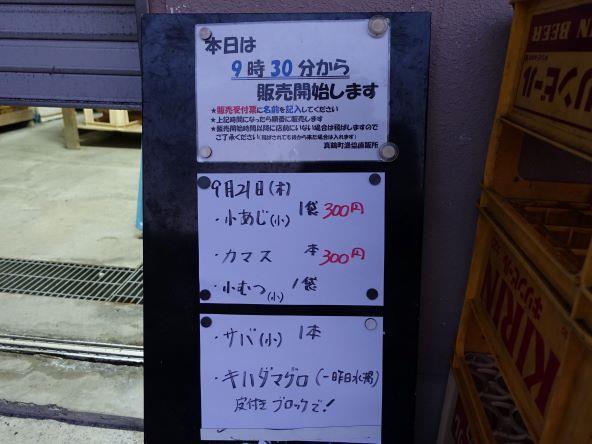 本日は
9時30分から
販売開始します
★販売受付票に名前を記入してください
★上記時間になったら順番に販売します
★販売開始時間以降に店前にいない場合は飛ばしますので
ご了承ください(飛ばされても待から来た場合は入れます)
真鶴町漁協直販所
9月21日(木)
・小あじ(小) 1袋 300円
・カマス 本 300円
・小むつ(小) 1袋
・サバ(小) 1本
・キハダマグロ(一昨日水揚)
皮付きブロックで!
KIRIN BEER
キリンビール
KIRIN
キリンビール